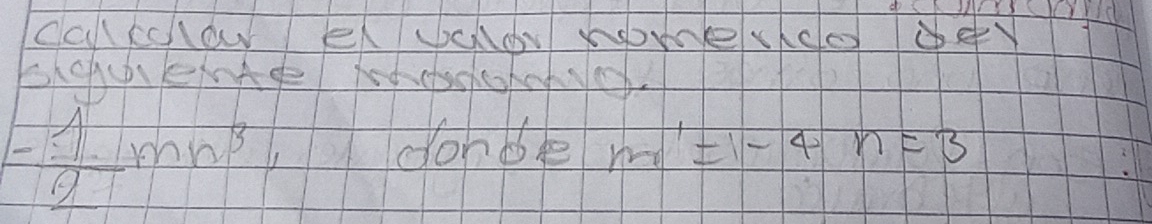 Calcular el valor nomerico del
siguiente monomio.
- 1/2 mn³, donde m = - 4 n = 3